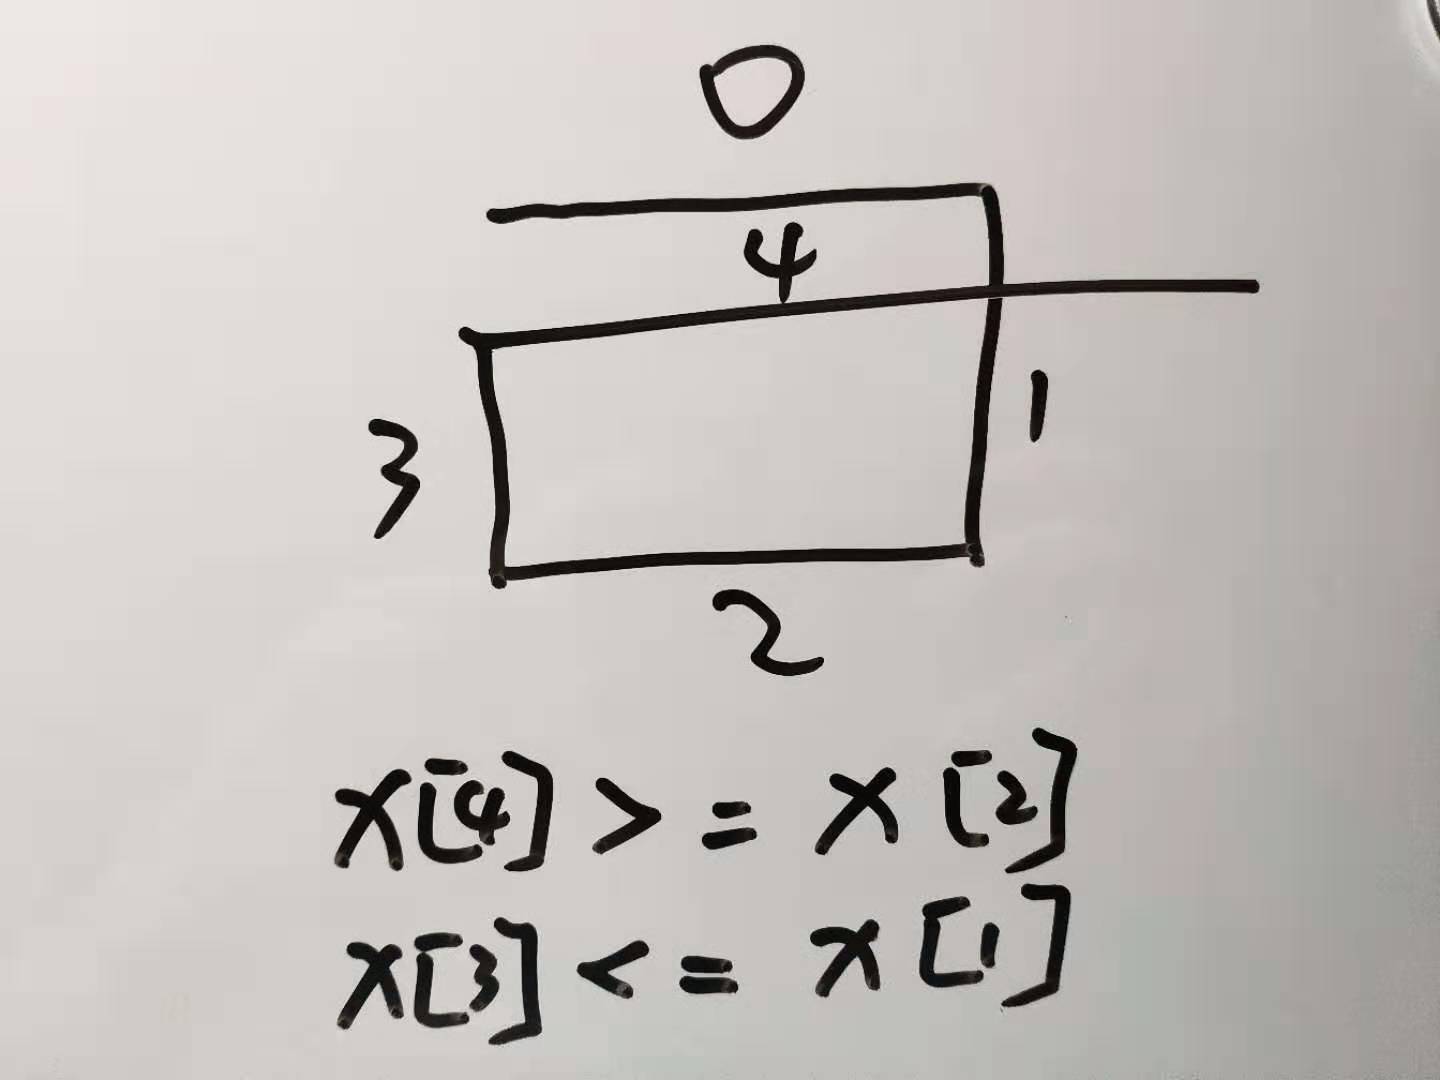 0
4
3
1
2
X[4] >= X[2]
X[3] <= X[1]